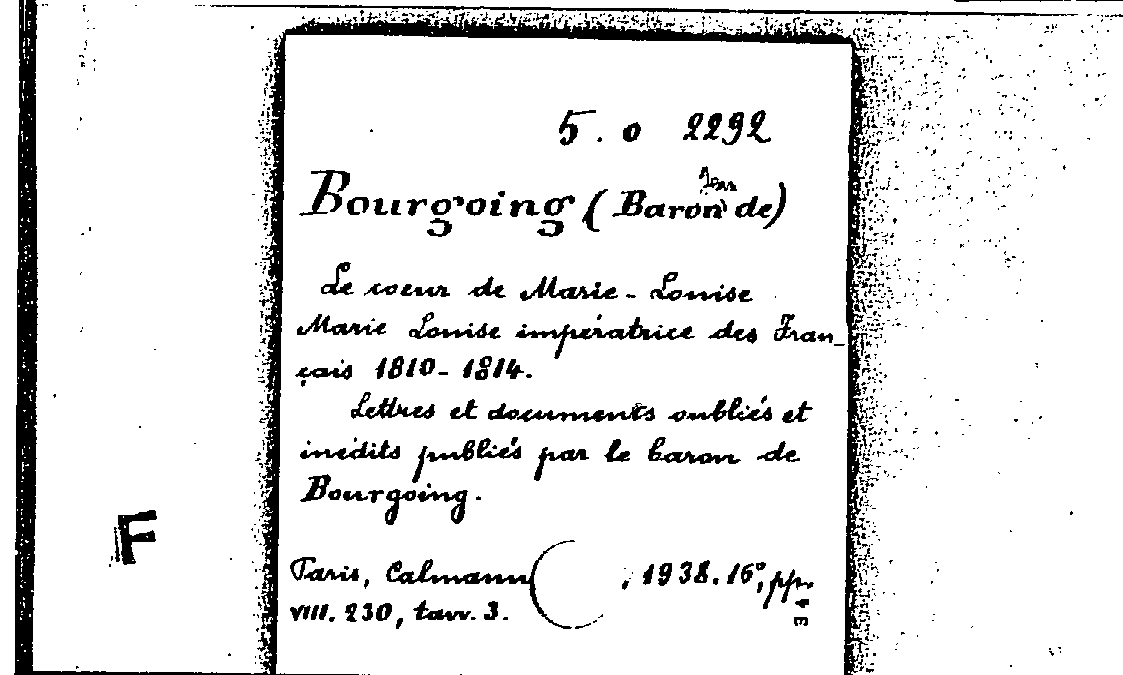 5. o 2292
Jean
Bourgoing (Baron de)
Le coeur de Marie-Louise
Marie Louise impératrice des Fran_
çais 1810-1814.
Lettres et documents oubliés et
inédits publiés par le baron de
Bourgoing.
Paris, Calmann , 1938. 16°, pp.
VIII. 230, tavv. 3.
F